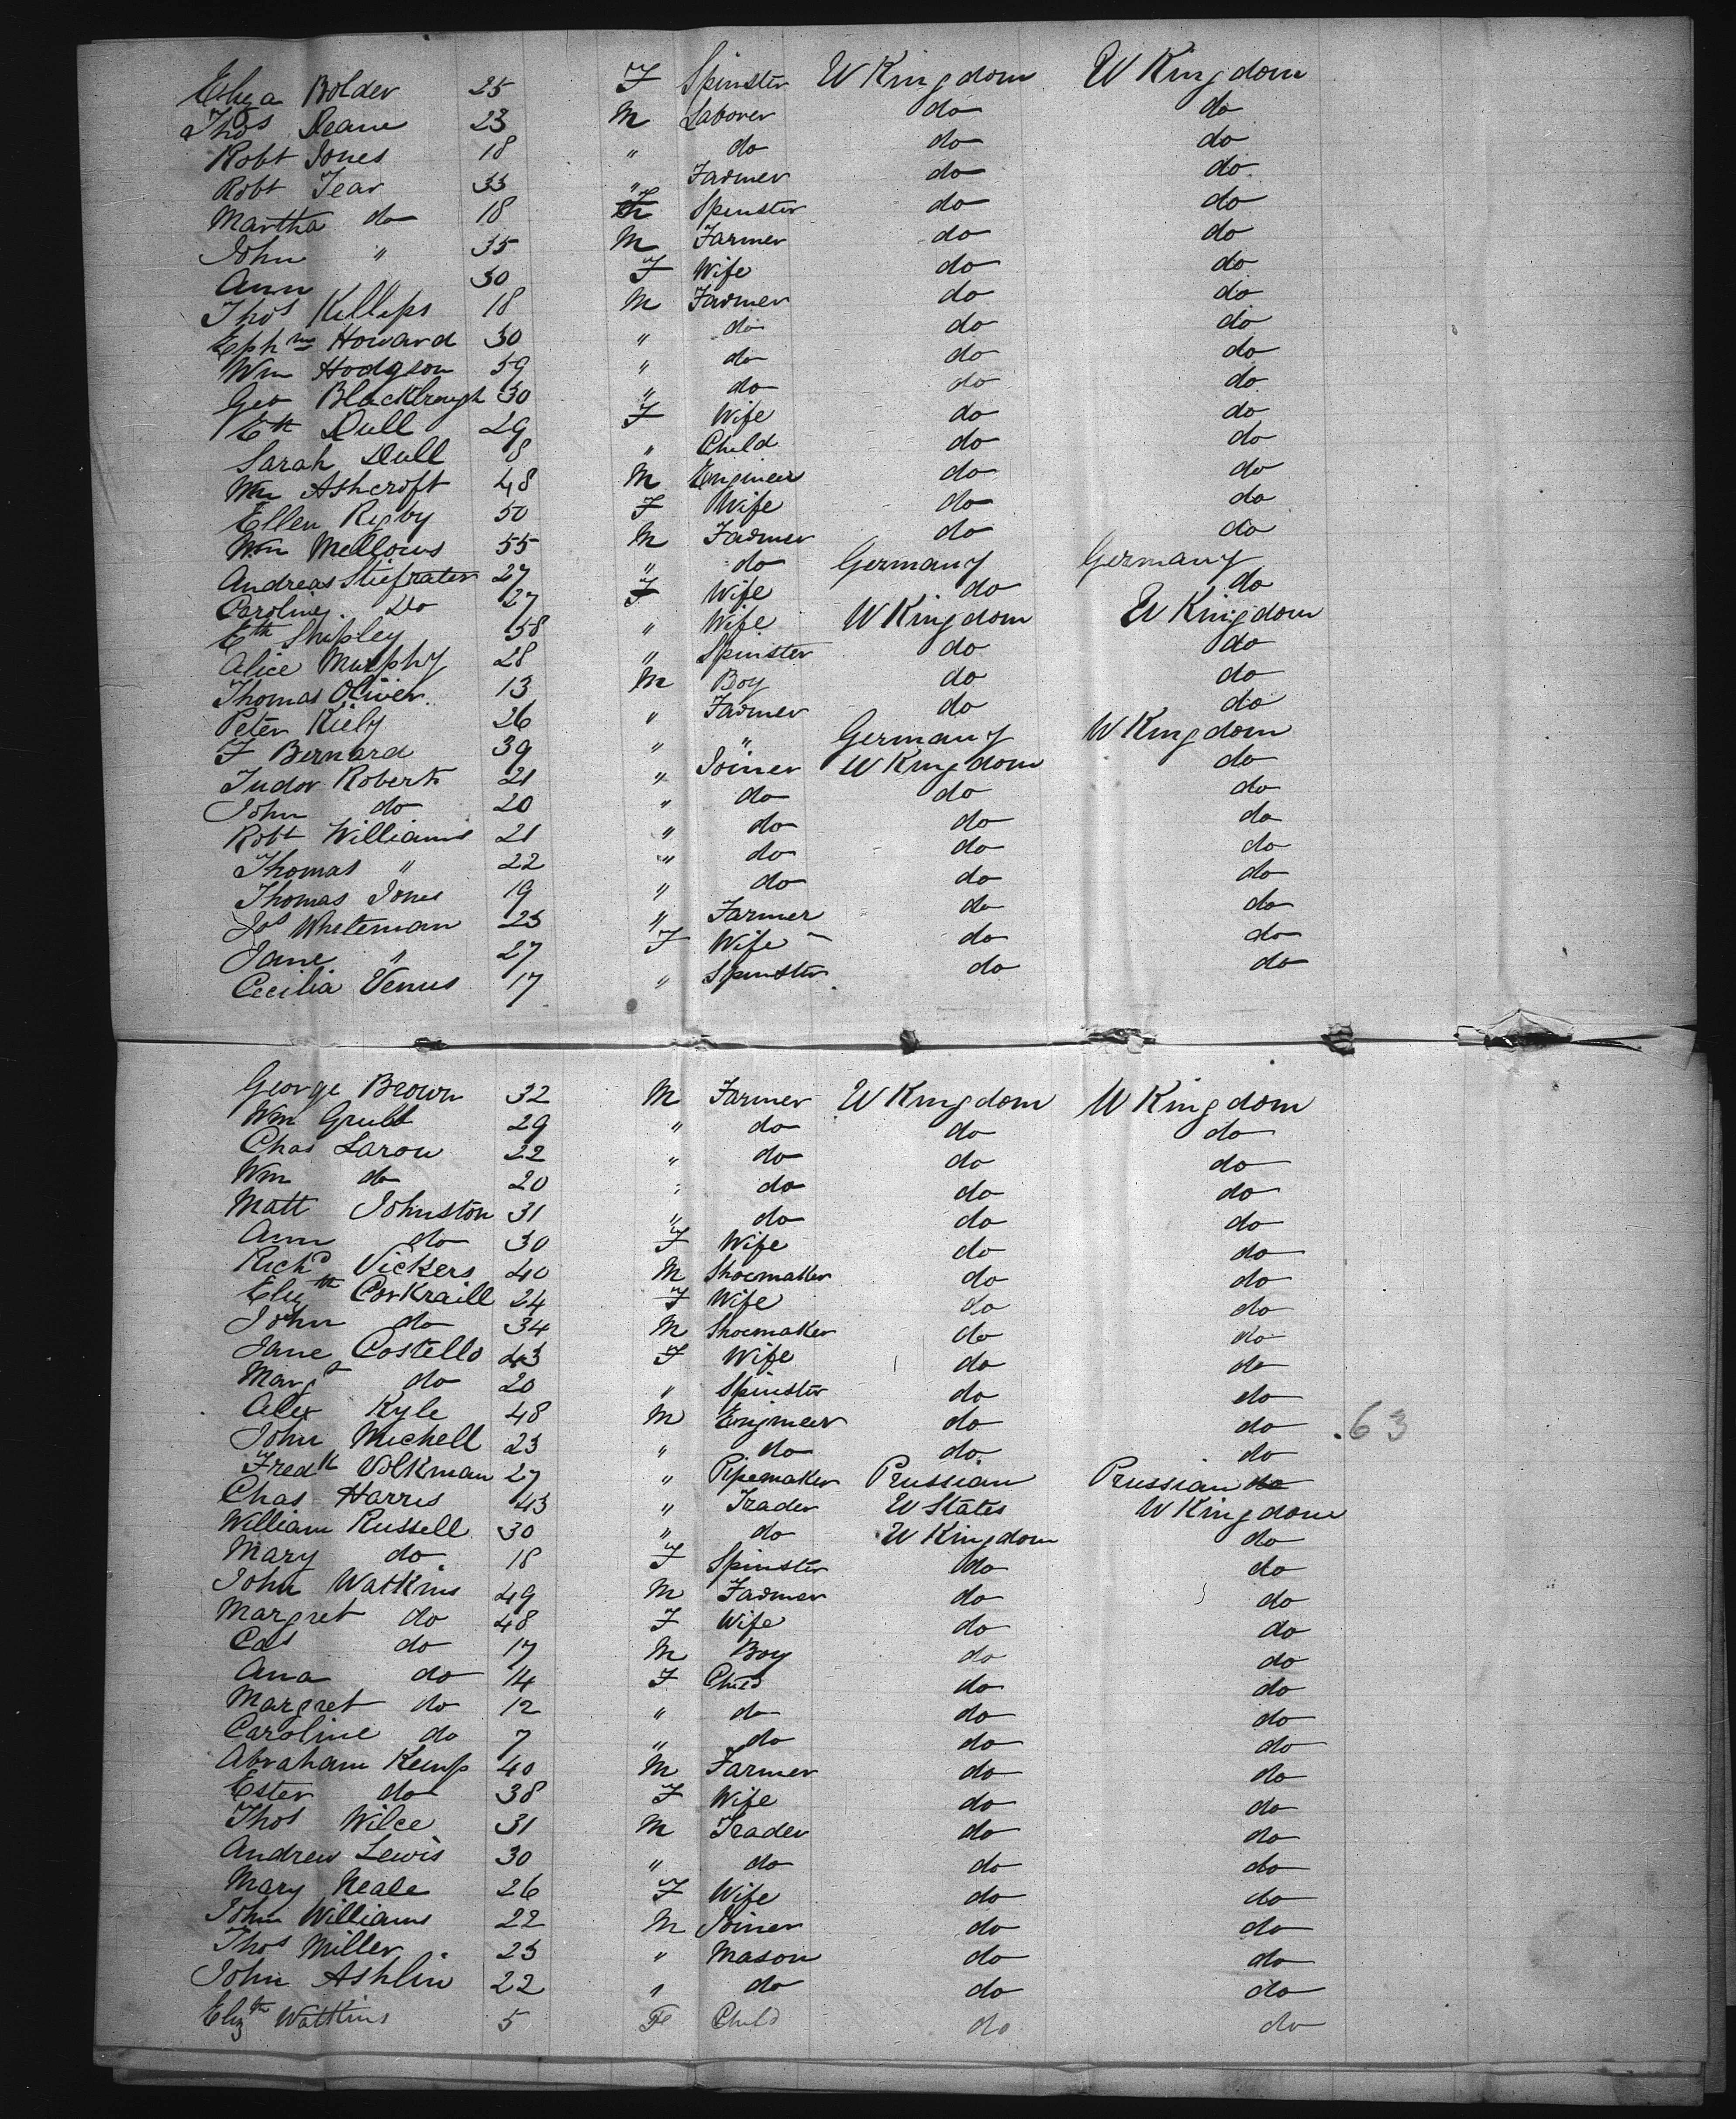 Eliza Bolder 25 F Spinster U Kingdom U Kingdom
Thos Deane 23 M Laborer do do
Robt Jones 18 " do do do
Robt Tear 33 " Farmer do do
Martha do 18 F Spinster do do
John " 35 M Farmer do do
Ann 30 F Wife do do
Thos Killips 18 M Farmer do do
Ephm Howard 30 " do do do
Wm Hodgson 59 " do do do
Geo Blackbrough 30 " do do do
Eth Dull 29 F Wife do do
Sarah Dull 8 " Child do do
Wm Ashcroft 48 M Engineer do do
Ellen Rigby 50 F Wife do do
Wm Mellows 55 M Farmer do do
Andreas Stiefrater 27 " do Germany Germany
Caroline Do 27 F Wife do do
Eth Shipley 58 " Wife U Kingdom U Kingdom
Alice Murphy 28 " Spinster do do
Thomas Oliver 13 M Boy do do
Peter Kiely 26 " Farmer do do
F Bernard 39 " " Germany U Kingdom
Tudor Roberts 21 " Joiner U Kingdom do
John do 20 " do do do
Robt Williams 21 " do do do
Thomas " 22 " do do do
Thomas Jones 19 " do do do
Jos Whiteman 25 " Farmer do do
Jane " 27 F Wife do do
Cecilia Venus 17 " Spinster do do
George Brown 32 M Farmer U Kingdom U Kingdom
Wm Grubb 29 " do do do
Chas Larou 22 " do do do
Wm do 20 " do do do
Matt Johnston 31 " do do do
Ann do 30 F Wife do do
Richd Vickers 40 M Shoemaker do do
Elizth Corkraill 24 F Wife do do
John do 34 M Shoemaker do do
Jane Costello 43 F Wife do do
Margt do 20 " Spinster do do
Alex Kyle 48 M Engineer do do .63
John Michell 23 " do do do
Fredk Volkman 27 " Pipemaker Prussian Prussian do
Chas Harris 43 " Trader U States U Kingdom
William Russell 30 " do U Kingdom do
Mary do 18 F Spinster do do
John Watkins 49 M Farmer do do
Margret do 48 F Wife do do
Cas do 17 M Boy do do
Ana do 14 F Child do do
Margret do 12 " do do do
Caroline do 7 " do do do
Abraham Kemp 40 M Farmer do do
Ester do 38 F Wife do do
Thos Wilce 31 M Trader do do
Andrew Lewis 30 " do do do
Mary Neale 26 F Wife do do
John Williams 22 M Joiner do do
Thos Miller 23 " Mason do do
John Ashlin 22 " do do do
Elizth Wattkins 5 Fe Child do do